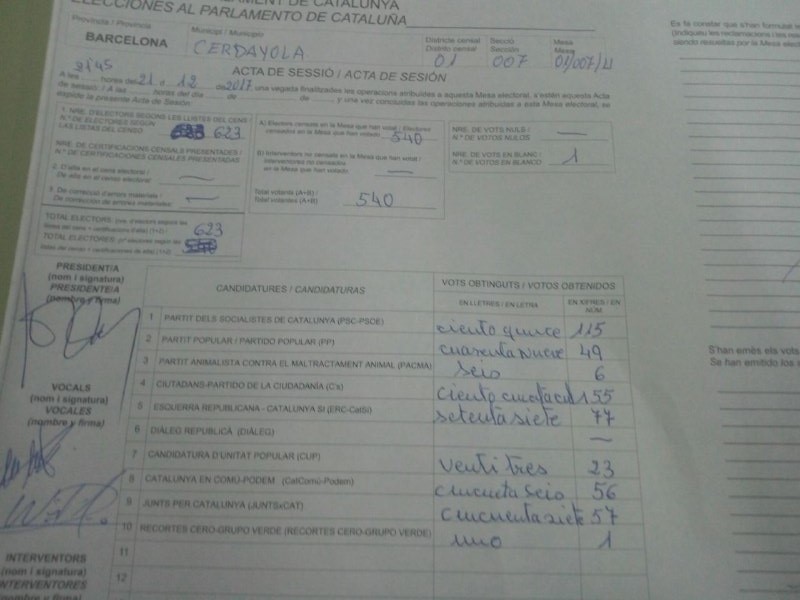 PARLAMENT DE CATALUNYA
ELECCIONES AL PARLAMENTO DE CATALUÑA
Provincia / Provincia
BARCELONA
Municipi / Municipio
CERDAYOLA
Districte censal
Distrito censal
01
Secció
Sección
007
Mesa
Mesa
01/007/U
ACTA DE SESSIÓ / ACTA DE SESIÓN
21:45
A les hores del 21 12 de 2017 una vegada finalitzades les operacions atribuïdes a aquesta Mesa electoral, s'estén aquesta Acta
de sessió: / A las horas del día de de y una vez concluidas las operaciones atribuidas a esta Mesa electoral, se
expide la presente Acta de Sesión:
1. NRE. D'ELECTORS SEGONS LES LLISTES DEL CENS
N.º DE ELECTORES SEGÚN
LAS LISTAS DEL CENSO
623
NRE. DE CERTIFICACIONS CENSALS PRESENTADES /
N.º DE CERTIFICACIONES CENSALES PRESENTADAS
2. D'alta en el cens electoral /
De alta en el censo electoral:
—
3. De correcció d'errors materials /
De corrección de errores materiales:
—
TOTAL ELECTORS
623
TOTAL ELECTORES
A) Electors censats en la Mesa que han votat / Electores
censados en la Mesa que han votado:
540
B) Interventors no censats en la Mesa que han votat /
Interventores no censados
en la Mesa que han votado:
—
Total votants (A+B) /
Total votantes (A+B)
540
NRE. DE VOTS NULS /
N.º DE VOTOS NULOS
—
NRE. DE VOTS EN BLANC /
N.º DE VOTOS EN BLANCO
1
PRESIDENT/A
(nom i signatura)
PRESIDENTE/A
(nombre y firma)
VOCALS
(nom i signatura)
VOCALES
(nombre y firma)
INTERVENTORS
(nom i signatura)
INTERVENTORES
(nombre y firma)
CANDIDATURES / CANDIDATURAS
VOTS OBTINGUTS / VOTOS OBTENIDOS
EN LLETRES / EN LETRA
EN XIFRES / EN NÚM.
1 PARTIT DELS SOCIALISTES DE CATALUNYA (PSC-PSOE) ciento quince 115
2 PARTIT POPULAR / PARTIDO POPULAR (PP) cuarenta nueve 49
3 PARTIT ANIMALISTA CONTRA EL MALTRACTAMENT ANIMAL (PACMA) seis 6
4 CIUTADANS-PARTIDO DE LA CIUDADANÍA (C's) ciento 155
5 ESQUERRA REPUBLICANA - CATALUNYA SÍ (ERC-CatSÍ) setenta siete 77
6 DIÀLEG REPUBLICÀ (DIÀLEG) —
7 CANDIDATURA D'UNITAT POPULAR (CUP) venti tres 23
8 CATALUNYA EN COMÚ-PODEM (CatComú-Podem) cincueta seis 56
9 JUNTS PER CATALUNYA (JUNTSxCAT) cincuenta siete 57
10 RECORTES CERO-GRUPO VERDE (RECORTES CERO-GRUPO VERDE) uno 1
11
12
Es fa constar que s'han formulat
(indiqueu les reclamacions i les
siendo resueltas por la Mesa
S'han emès els vots
Se han emitido los